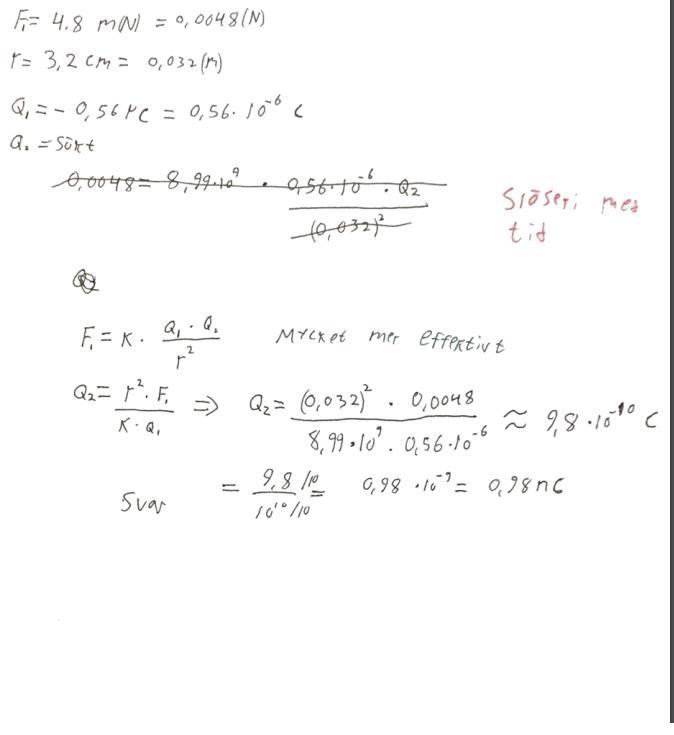 F₁= 4.8 m(N) = 0,0048(N)
r= 3,2 cm = 0,032(m)
Q₁=- 0,56 μC = 0,56·10⁻⁶ C
Q₂ = Sökt
0,0048= 8,99·10⁹ · 0,56·10⁻⁶ · Q₂ / (0,032)²
Slöseri med tid
F₁= K · Q₁ · Q₂ / r²
Mycket mer effektivt
Q₂= r² · F₁ / K · Q₁ ⇒ Q₂= (0,032)² · 0,0048 / 8,99·10⁹ · 0,56·10⁻⁶ ≈ 9,8 ·10⁻¹⁰ C
Svar = 9,8 /10 / 10¹⁰/10 = 0,98 ·10⁻⁹ = 0,98 nC